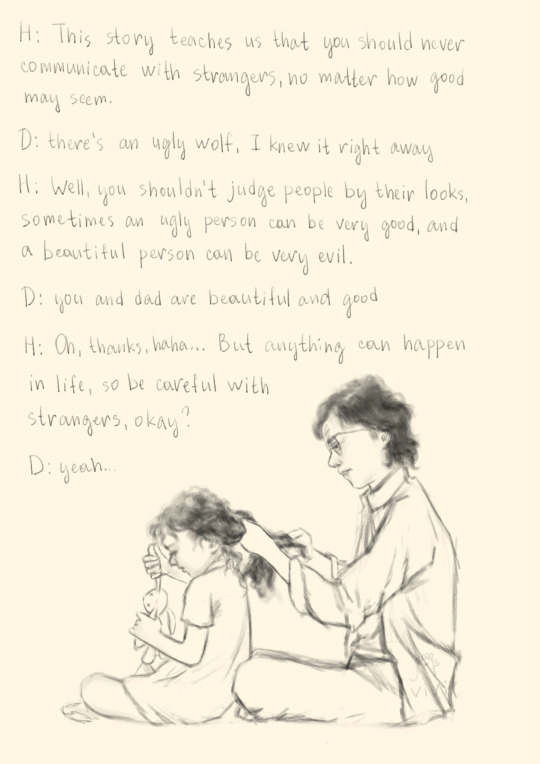 H: This story teaches us that you should never
communicate with strangers, no matter how good
may seem.
D: there's an ugly wolf, I knew it right away
H: Well, you shouldn't judge people by their looks,
sometimes an ugly person can be very good, and
a beautiful person can be very evil.
D: you and dad are beautiful and good
H: Oh, thanks, haha... But anything can happen
in life, so be careful with
strangers, okay?
D: yeah...